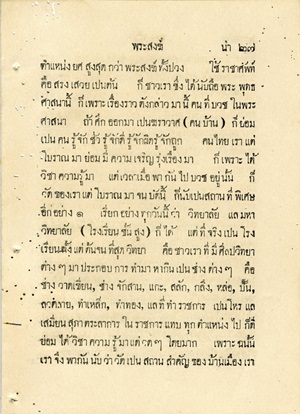 พระสงฆ์ น่า ๒๗
ตำแหน่ง ยศ สูงสุด กว่า พระสงฆ์ ทั้งปวง ใช้ ราชาศัพท์
คือ สรง เสวย เปนต้น ก็ ชาวเรา ซึ่ง ได้ นับถือ พระ พุทธ
ศาสนานี้ ก็ เพราะ เรื่องราว ดังกล่าว มา นี้ คน ที่ บวช ในพระ
ศาสนา ถ้า สึก ออกมา เปนฆราวาศ (คน บ้าน) ก็ ย่อม
เปน คน รู้จัก ชั่ว รู้จักดี รู้จักผิดรู้จักถูก คนไทย เรา แต่
โบราณ มา ย่อม มี ความ เจริญ รุ่งเรือง มา ก็ เพราะ ได้
วิชา ความรู้ มา แต่ เวลาเมื่อ พา กันไป บวช อยู่ นั้น ก็
วัด ของเรา แต่ โบราณ มา จน บัดนี้ ก็นับเปนสถาน ที่ พิเศษ
อีก อย่าง ๑ เรียก อย่าง ทุกวันนี้ ว่า วิทยาลัย แล มหา
วิทยาลัย (โรงเรียน ชั้น สูง) ก็ ได้ แต่ ที่ จริง เปน โรง
เรียนตั้ง แต่ ต้นจน ที่สุด วิทยา คือ ชาวเรา ที่ มี ศิลปวิทยา
ต่าง ๆ มา ประกอบ การ ทำมา หากิน เปน ช่าง ต่าง ๆ คือ
ช่าง วาดเขียน, ช่าง จักสาน, แกะ, สลัก, กลึง, หล่อ, ปั้น,
ลวดลาย, ทำเหล็ก, ทำทอง, แล ที่ ทำ ราชการ เปน ไพร่ แล
เสมียน สุภา ตระลาการ ใน ราชการ แทบ ทุก ตำแหน่ง ไป ก็ดี
ย่อม ได้ วิชา ความ รู้ มา แต่ วัด ๆ โดยมาก เพราะ ฉนั้น
เรา จึง พากัน นับ ว่า วัด เปน สถาน สำคัญ ของ บ้านเมือง เรา